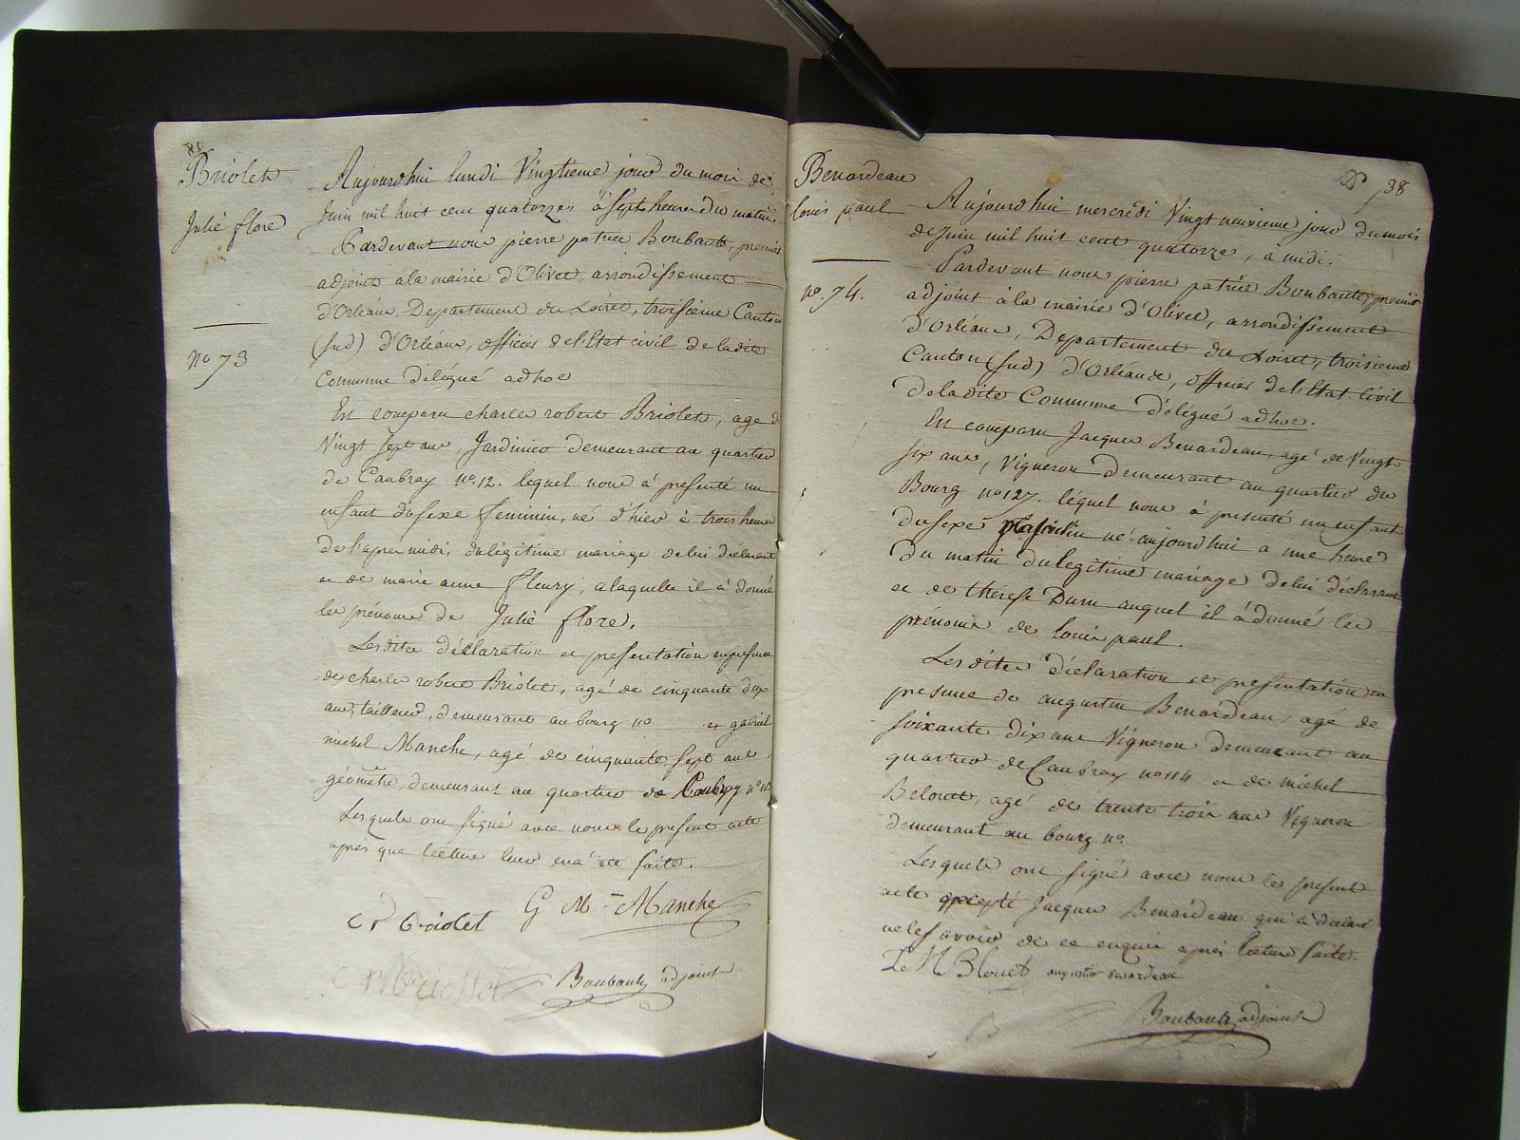 Briolet
Julie flore
no 73
Aujourdhui lundi Vingtieme jour du mois de
Juin mil huit cent quatorze, à Sept heures du matin
Pardevant nous pierre patrice Boubault, premier
adjoint a la mairie d'Olivet, arrondissement
d'Orléans, Departement du Loiret, troisieme Canton
(sud) d'Orléans, officier de l'Etat civil de ladite
Commune délégué adhoc
Est comparu charles robert Briolet, agé de
Vingt sept ans, Jardinier demeurant au quartier
de Caubray no 12. lequel nous à presenté un
enfant du sexe feminin, né d'hier à trois heures
de l'apres midi, du légitime mariage de lui déclarant
et de marie anne fleury, a laquelle il à donné
les prénoms de Julie flore.
Les dites déclaration et presentation en presence
de charles robert Briolet, agé de cinquante dix
ans, tailleur, demeurant au bourg no et gabriel
michel Manche, agé de cinquante sept ans
géometre, demeurant au quartier de Caubray no
Lesquels ont signé avec nous le present acte
apres que lecture leur en à été faite.
C r Briolet G M Manche
Boubault adjoint
38
Benardeau
louis paul
no. 74.
Aujourdhui mercredi Vingt neuvieme jour du mois
de Juin mil huit cent quatorze, a midi.
Pardevant nous pierre patrice Boubault, premier
adjoint à la mairie d'Olivet, arrondissement
d'Orléans, Departement du Loiret, troisieme
Canton (sud) d'Orleans, officier de l'Etat Civil
de ladite Commune délégué adhoc.
Est comparu Jacques Benardeau, agé de Vingt
six ans, Vigneron demeurant au quartier du
Bourg no 127. léquel nous à presenté un enfant
du sexe masculin né aujourdhui a une heure
du matin du legitime mariage de lui déclarant
et de thérese Duru auquel il à donné les
prénoms de louis paul.
Les dites déclaration et presentation en
presence de augustin Benardeau, agé de
soixante dix ans Vigneron demeurant au
quartier de Caubray no 114 et de michel
Belouet, agé de trente trois ans Vigneron
demeurant au bourg no.
Lesquels ont signé avec nous les present
acte excepté Jacques Benardeau qui à déclaré
ne le savoir de ce enquis apres lecture faite.
Blouet augustin benardeau
Boubault adjoint